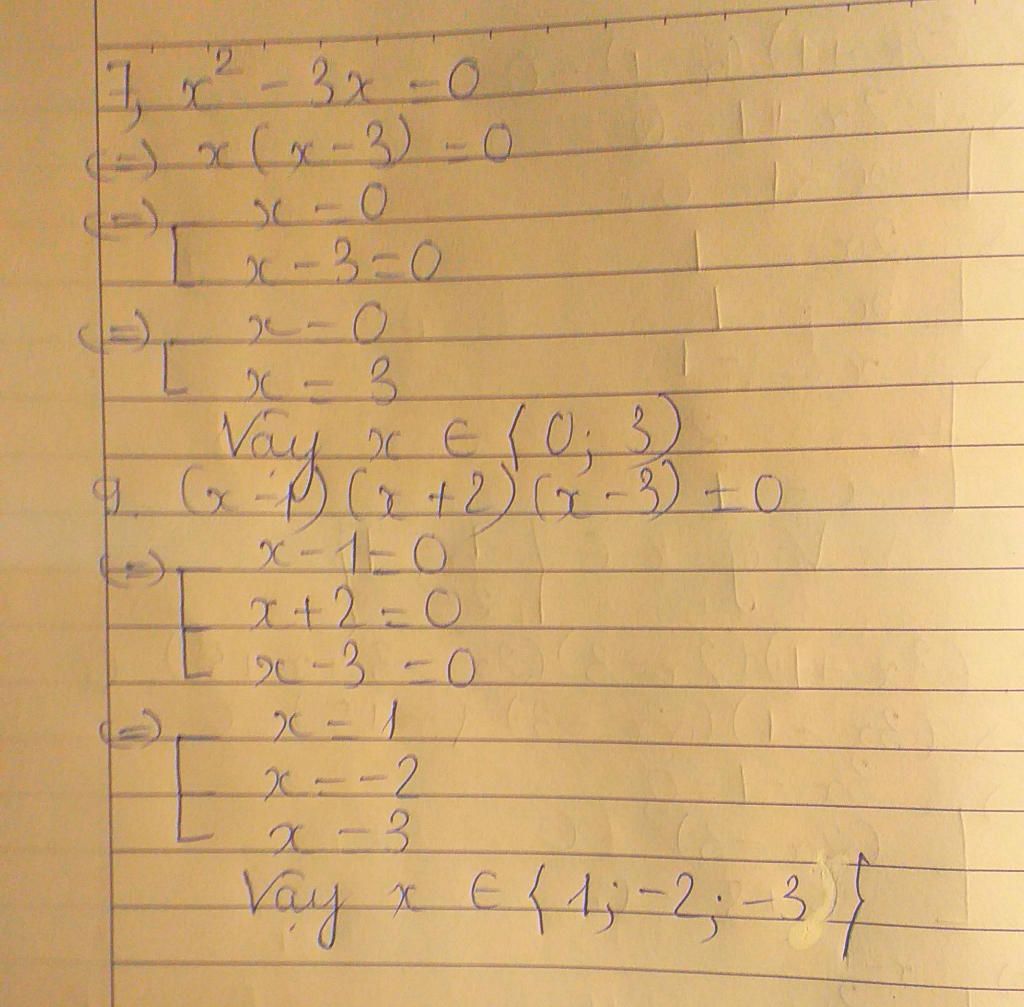 7, x² - 3x = 0
(=) x(x-3) = 0
(=) [ x = 0
x - 3 = 0
(=) [ x = 0
x = 3
Vậy x ∈ {0; 3)
9. (x-1)(x+2)(x-3) = 0
(=) [ x - 1 = 0
x + 2 = 0
x - 3 = 0
(=) [ x = 1
x = -2
x = 3
Vậy x ∈ {1; -2; -3}